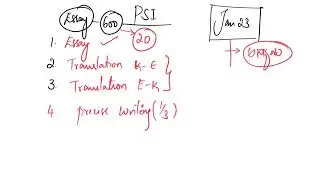 Essay 600 PSI
1. Essay ✓ 20
2 Translation K-E
3. Translation E-K
4 precise writing (1/3)
Jan 23